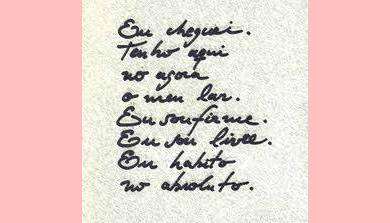 Eu cheguei.
Tenho aqui
no agora
o meu lar.
Eu sou firme.
Eu sou livre.
Eu habito
no absoluto.